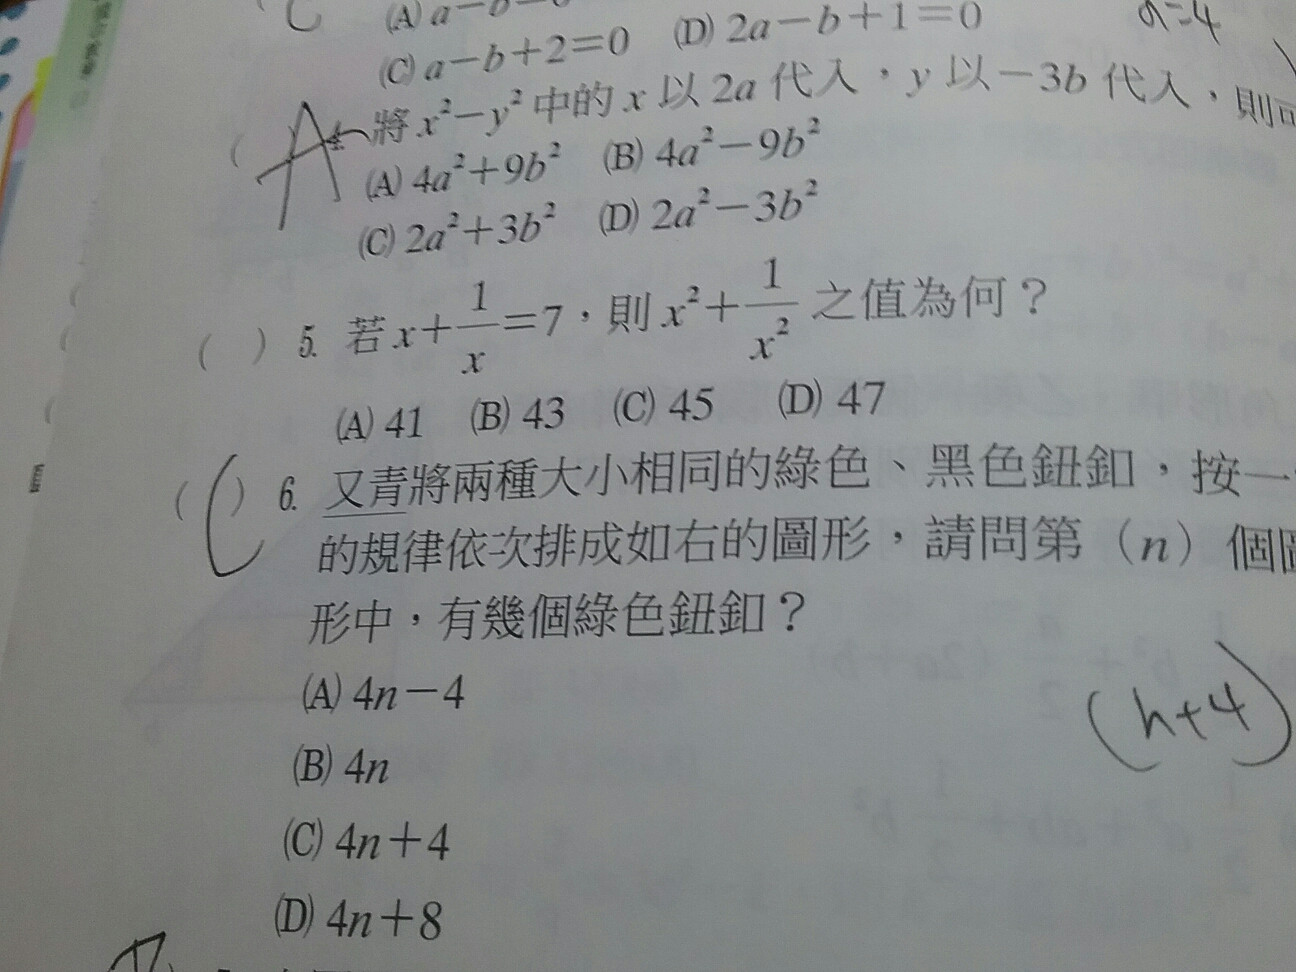 (C) a－b＋2＝0 (D) 2a－b＋1＝0
a=4
( A 將 x²－y² 中的 x 以 2a 代入，y 以－3b 代入，則可
(A) 4a²＋9b² (B) 4a²－9b²
(C) 2a²＋3b² (D) 2a²－3b²
( ) 5. 若 x＋1/x＝7，則 x²＋1/x² 之值為何？
(A) 41 (B) 43 (C) 45 (D) 47
( C ) 6. 又青將兩種大小相同的綠色、黑色鈕釦，按一
的規律依次排成如右的圖形，請問第（n）個圖
形中，有幾個綠色鈕釦？
(A) 4n－4
(n+4)
(B) 4n
(C) 4n＋4
(D) 4n＋8